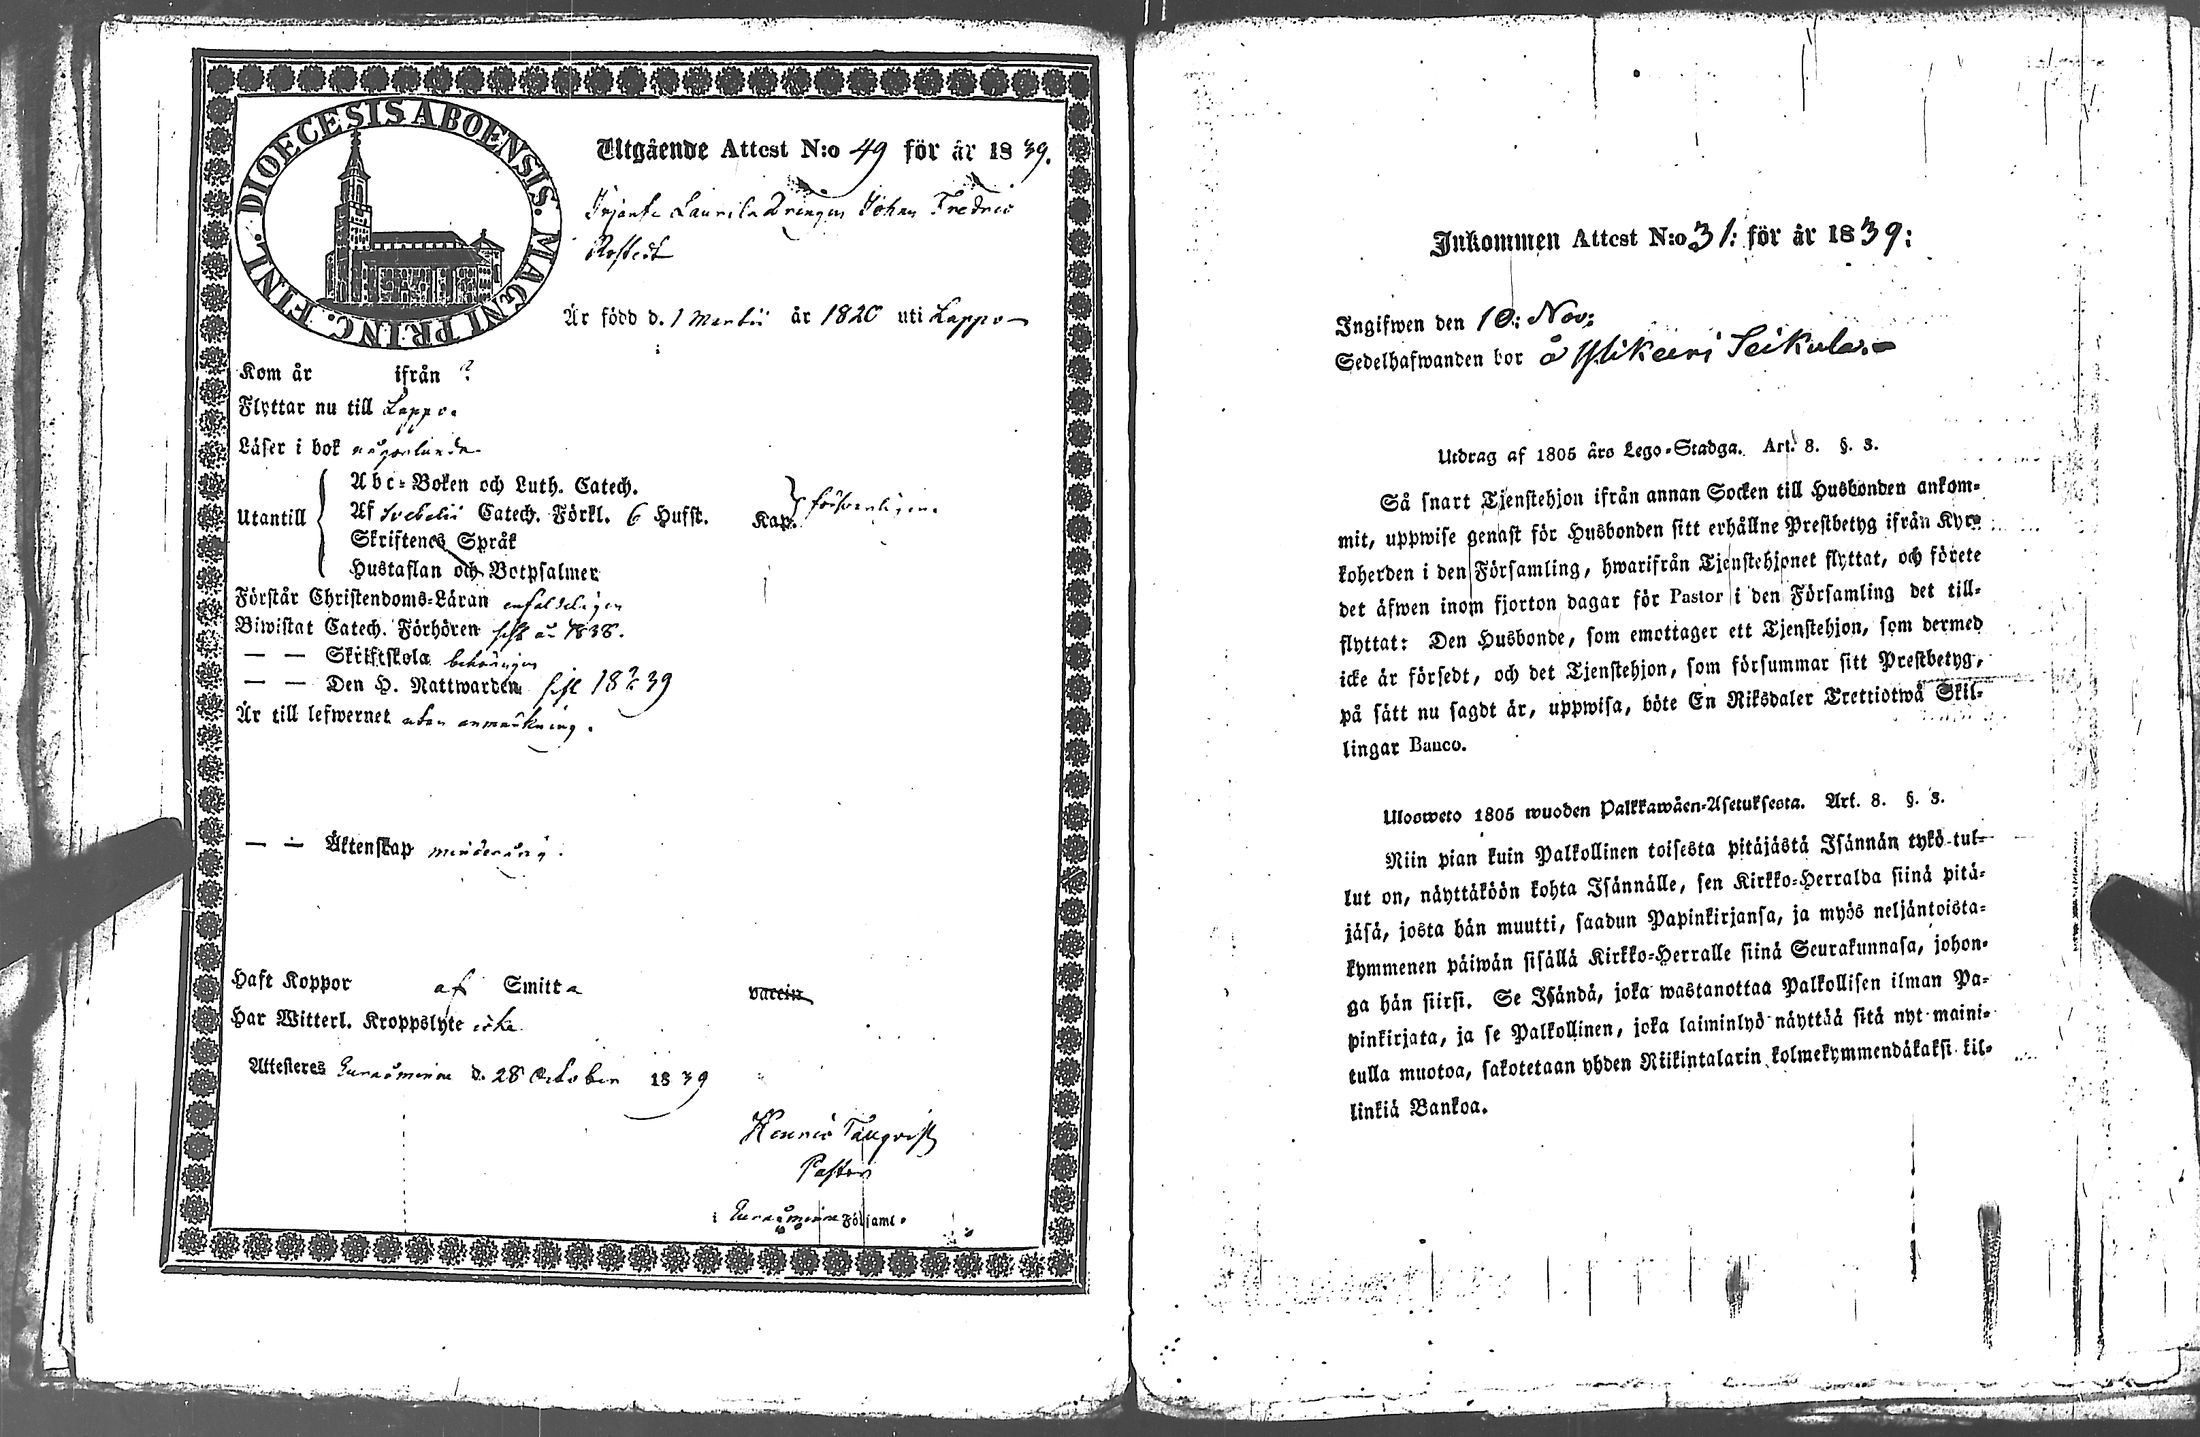 DIOECESIS ABOENSIS. MAGNI PRINC. FINL.
Utgående Attest N:o 49 för år 1839.
Irjante Laurila Drängen Johan Fredric
Är född d. 1 Martii år 1820 uti Lappo
Kom år ifrån ?
Flyttar nu till Lappo.
Läser i bok någorlunda
Utantill
Abc-Boken och Luth. Catech.
Af Svebelii Catech. Förkl. 6 Hufst. Kap. försvarligen.
Skriftenes Språk
Hustaflan och Botpsalmer
Förstår Christendoms-Läran enfaldeligen
Biwistat Catech. Förhören sist år 1838.
— — Skriftskola behörigen
— — Den H. Nattwarden sist 18 39
Är till lefwernet utan anmärkning.
— — Äktenskap minderårig.
Haft Koppor af Smitta vaccin
Har Witterl. Kroppslyte icke
Attesteres Euraåminne d. 28 October 1839
Henric Tallqvist
Pastor
i Euraåminne Församl.
Inkommen Attest N:o 31: för år 1839:
Ingifwen den 10: Nov:
Sedelhafwanden bor å Ylikeeri Seikula.
Utdrag af 1805 års Lego-Stadga. Art. 8. §. 3.
Så snart Tjenstehjon ifrån annan Socken till Husbonden ankom-
mit, uppwise genast för Husbonden sitt erhållne Prestbetyg ifrån Kyr-
koherden i den Församling, hwarifrån Tjenstehjonet flyttat, och förete
det äfwen inom fjorton dagar för Pastor i den Församling det till-
flyttat: Den Husbonde, som emottager ett Tjenstehjon, som dermed
icke är försedt, och det Tjenstehjon, som försummar sitt Prestbetyg,
på sätt nu sagdt är, uppwisa, böte En Riksdaler Trettiotwå Skil-
lingar Banco.
Ulosweto 1805 wuoden Palkkawäen-Asetuksesta. Art. 8. §. 3.
Niin pian kuin Palkollinen toisesta pitäjästä Isännän tykö tul-
lut on, näyttäköön kohta Isännälle, sen Kirkko-Herralda siinä pitä-
jäsä, josta hän muutti, saadun Papinkirjansa, ja myös neljäntoista-
kymmenen päiwän sisällä Kirkko-Herralle siinä Seurakunnasa, johon-
ga hän siirsi. Se Isändä, joka wastanottaa Palkollisen ilman Pa-
pinkirjata, ja se Palkollinen, joka laiminlyö näyttää sitä nyt maini-
tulla muotoa, sakotetaan yhden Riikintalarin kolmekymmendäkaksi kil-
linkiä Bankoa.